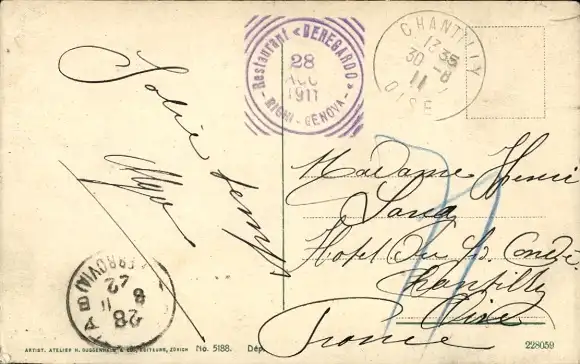 Restaurant «DEREGARDO»
28
AGO
1911
- RIGHI - GENOVA -
CHANTILLY
13 35
30 -8
11
OISE
Madame Henri
Hotel du Gd Condé
Chantilly
Oise
France
FERROVIA
22
8
28 11
ARTIST. ATELIER H. GUGGENHEIM & CO., EDITEURS, ZÜRICH No. 5188. Dép.
228059